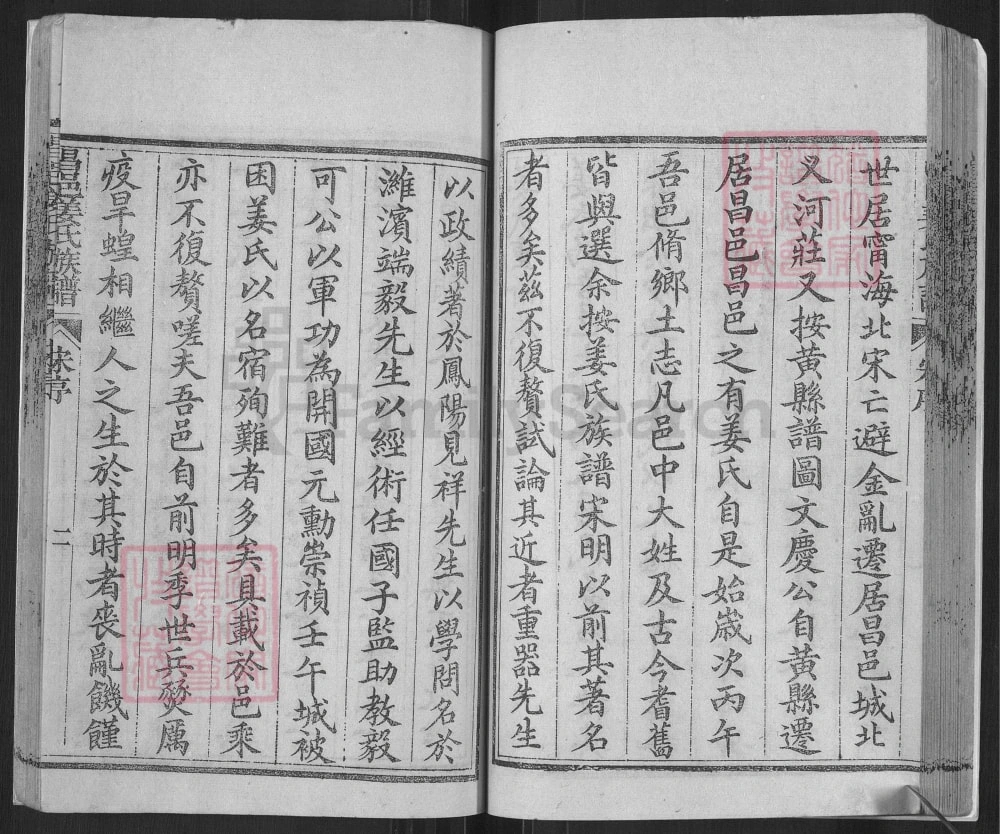 世居甯海北宋亡避金亂遷居昌邑城北
义河莊又按黃縣譜圖文慶公自黃縣遷
居昌邑昌邑之有姜氏自是始歲次丙午
吾邑脩鄉土志凡邑中大姓及古今耆舊
皆與選余按姜氏族譜宋明以前其著名
者多矣茲不復贅試論其近者重器先生
以政績著於鳳陽見祥先生以學問名於
濰濱端毅先生以經術任國子監助教毅
可公以軍功為開國元勳崇禎壬午城被
困姜氏以名宿殉難者多矣具載於邑乘
亦不復贅嗟夫吾邑自前明季世兵燹厲
疫旱蝗相繼人之生於其時者喪亂饑饉
昌邑姜氏族譜
宋序
二
FamilySearch